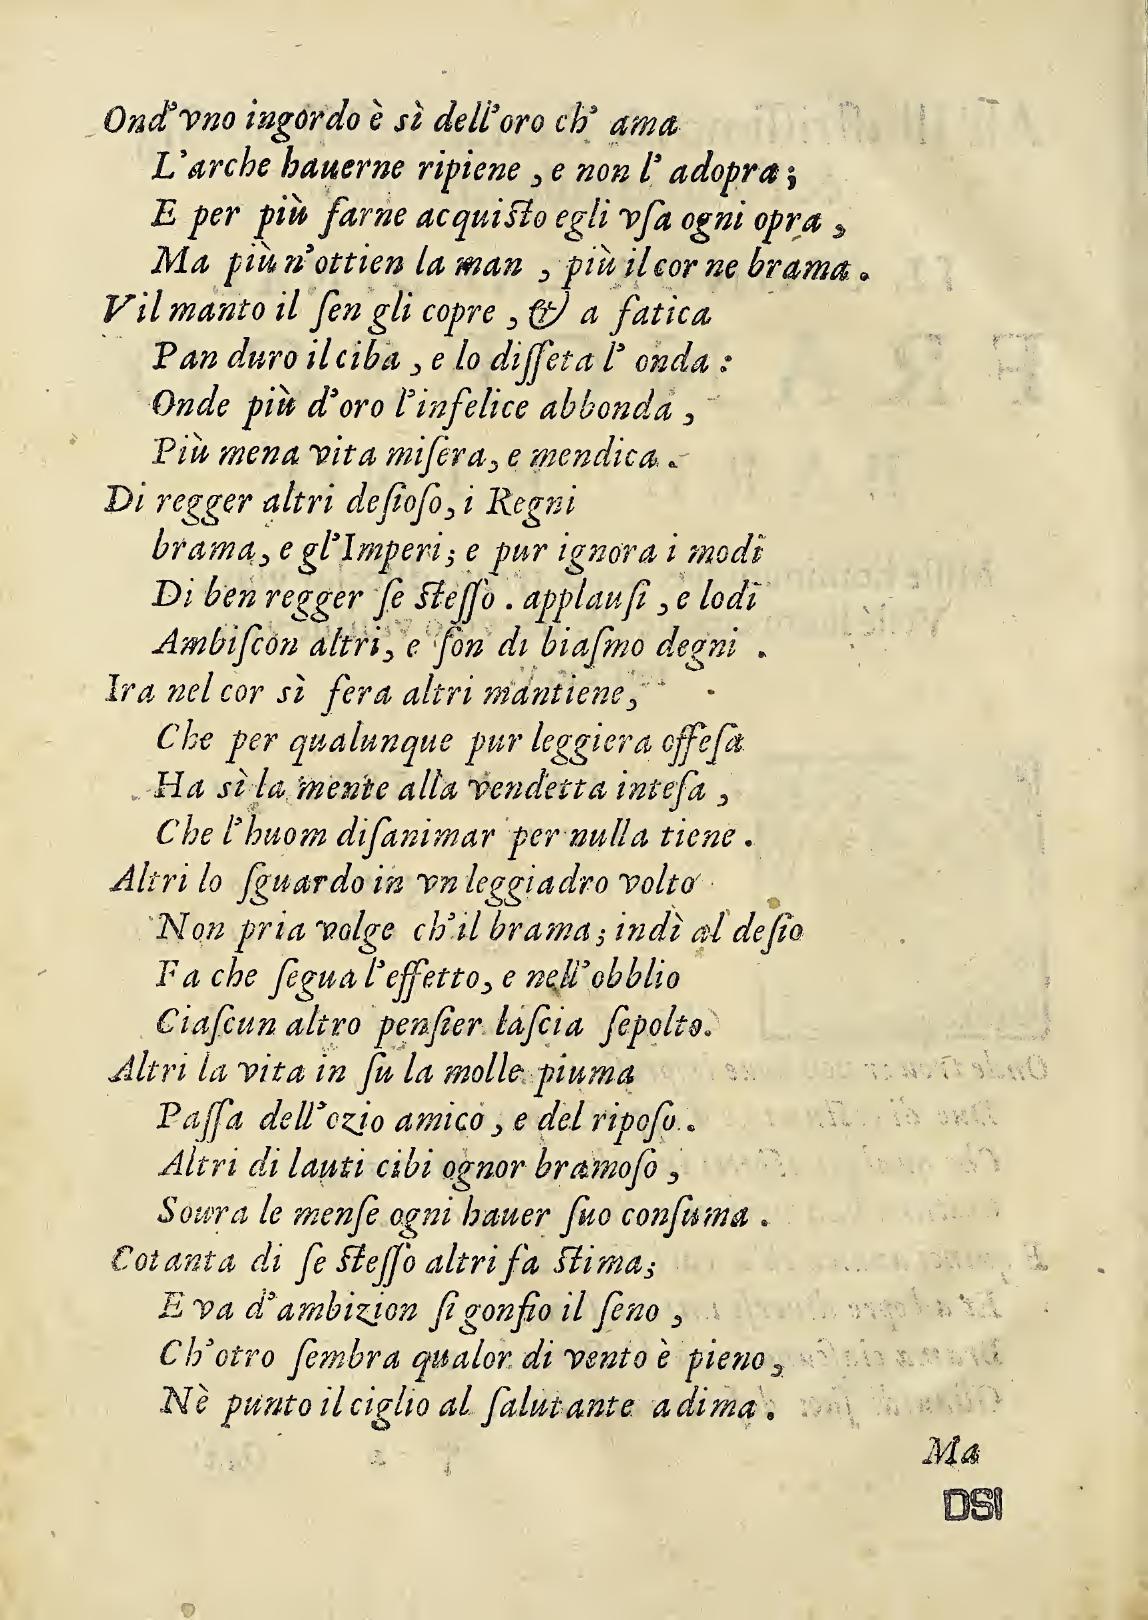 Ond'vno ingordo è sì dell'oro ch' ama
L'arche hauerne ripiene , e non l' adopra ;
E per più farne acquiſto egli vſa ogni opra ,
Ma più n'ottien la man , più il cor ne brama .
Vil manto il ſen gli copre , & a fatica
Pan duro il ciba , e lo diſſeta l' onda :
Onde più d'oro l'infelice abbonda ,
Più mena vita miſera, e mendica .
Di regger altri deſioſo, i Regni
brama, e gl'Imperi; e pur ignora i modi
Di ben regger ſe ſteſſo . applauſi , e lodi
Ambiſcon altri, e ſon di biaſmo degni .
Ira nel cor sì fera altri mantiene,
Che per qualunque pur leggiera offeſa
Ha sì la mente alla vendetta inteſa ,
Che l'huom diſanimar per nulla tiene .
Altri lo ſguardo in vn leggiadro volto
Non pria volge ch'il brama; indi al deſio
Fa che ſegua l'effetto, e nell'obblio
Ciaſcun altro penſier laſcia ſepolto.
Altri la vita in ſu la molle piuma
Paſſa dell'ozio amico , e del ripoſo .
Altri di lauti cibi ognor bramoſo ,
Soura le menſe ogni hauer ſuo conſuma .
Cotanta di ſe ſteſſo altri fa ſtima;
E va d'ambizion ſi gonfio il ſeno ,
Ch'otro ſembra qualor di vento è pieno,
Nè punto il ciglio al ſalutante adima .
Ma
DSI